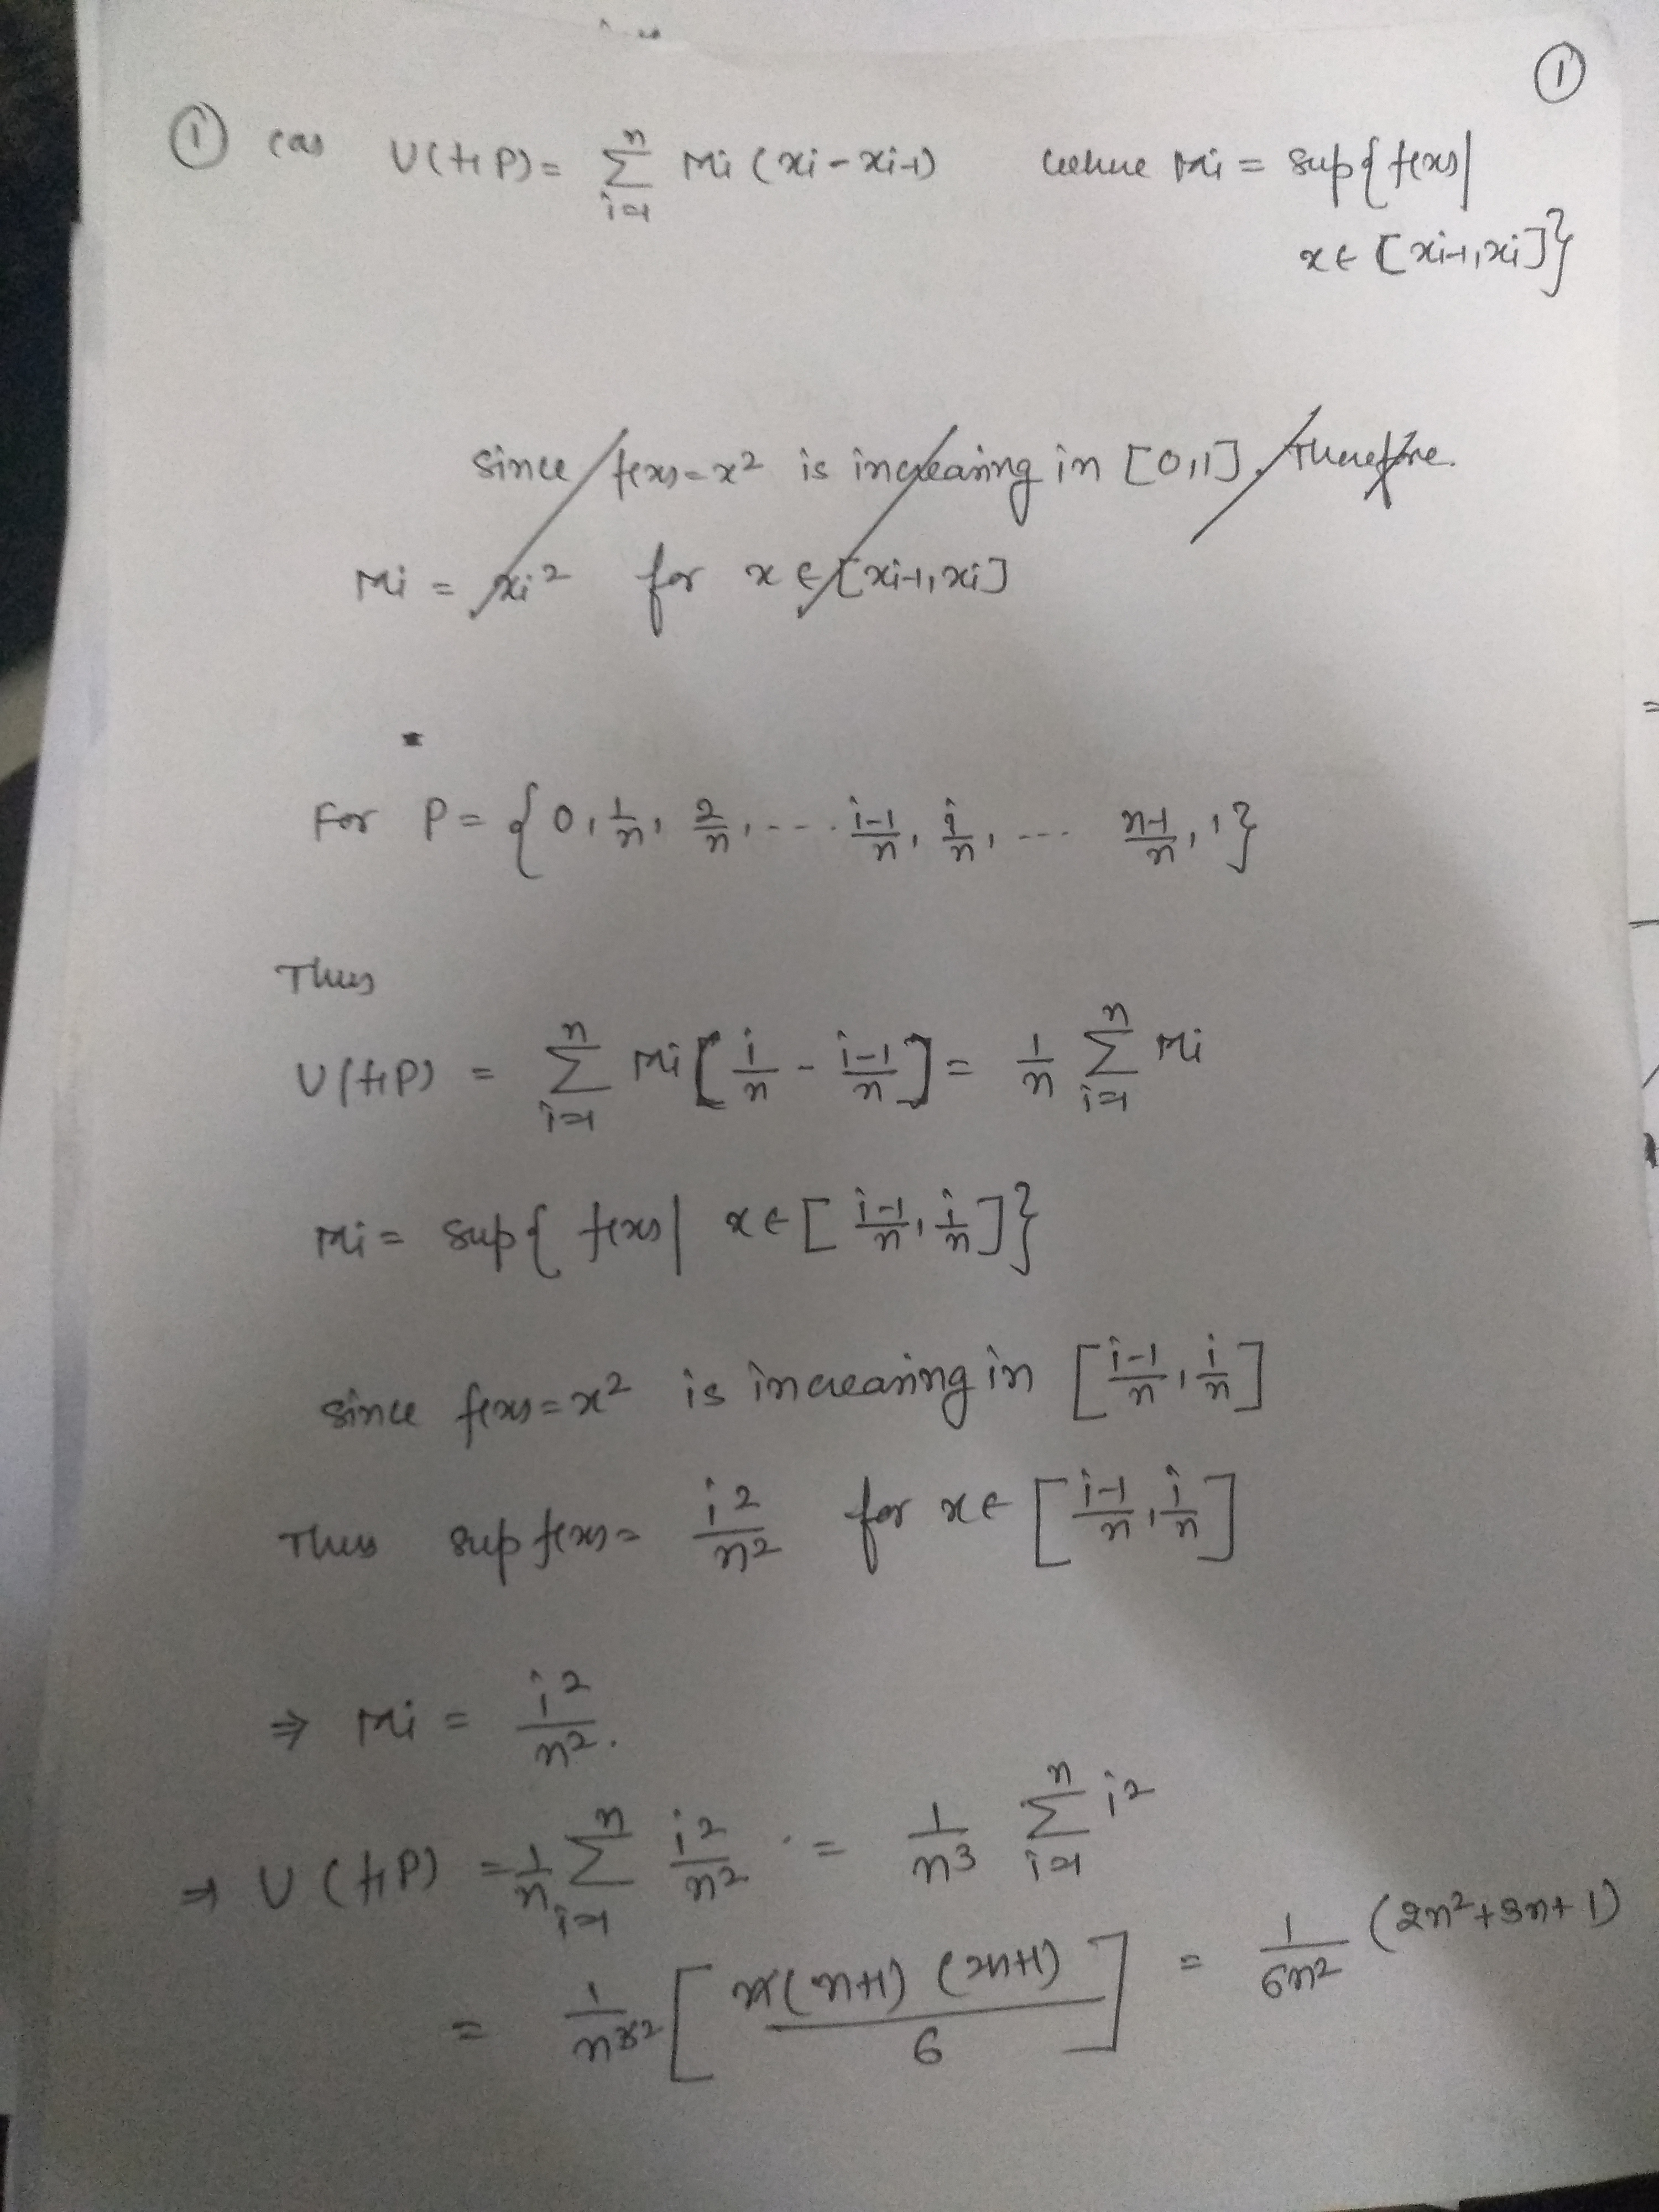 ①
① (a) U(f,P) = ∑_{i=1}^{n} Mi (xi - xi-1) where Mi = sup{ f(x) |
x ∈ [xi-1, xi] }
Since f(x) = x² is increasing in [0,1]. Therefore
Mi = xi² for x ∈ [xi-1, xi]
For P = { 0, 1/n, 2/n, ---- (i-1)/n, i/n, --- (n-1)/n, 1 }
Thus
U(f,P) = ∑_{i=1}^{n} Mi [ i/n - (i-1)/n ] = 1/n ∑_{i=1}^{n} Mi
Mi = sup{ f(x) | x ∈ [ (i-1)/n, i/n ] }
Since f(x) = x² is increasing in [ (i-1)/n, i/n ]
Thus sup f(x) = i²/n² for x ∈ [ (i-1)/n, i/n ]
⇒ Mi = i²/n².
⇒ U(f,P) = 1/n ∑_{i=1}^{n} i²/n² = 1/n³ ∑_{i=1}^{n} i²
= 1/n³² [ n(n+1) (2n+1) / 6 ] = 1/6n² (2n²+3n+1)